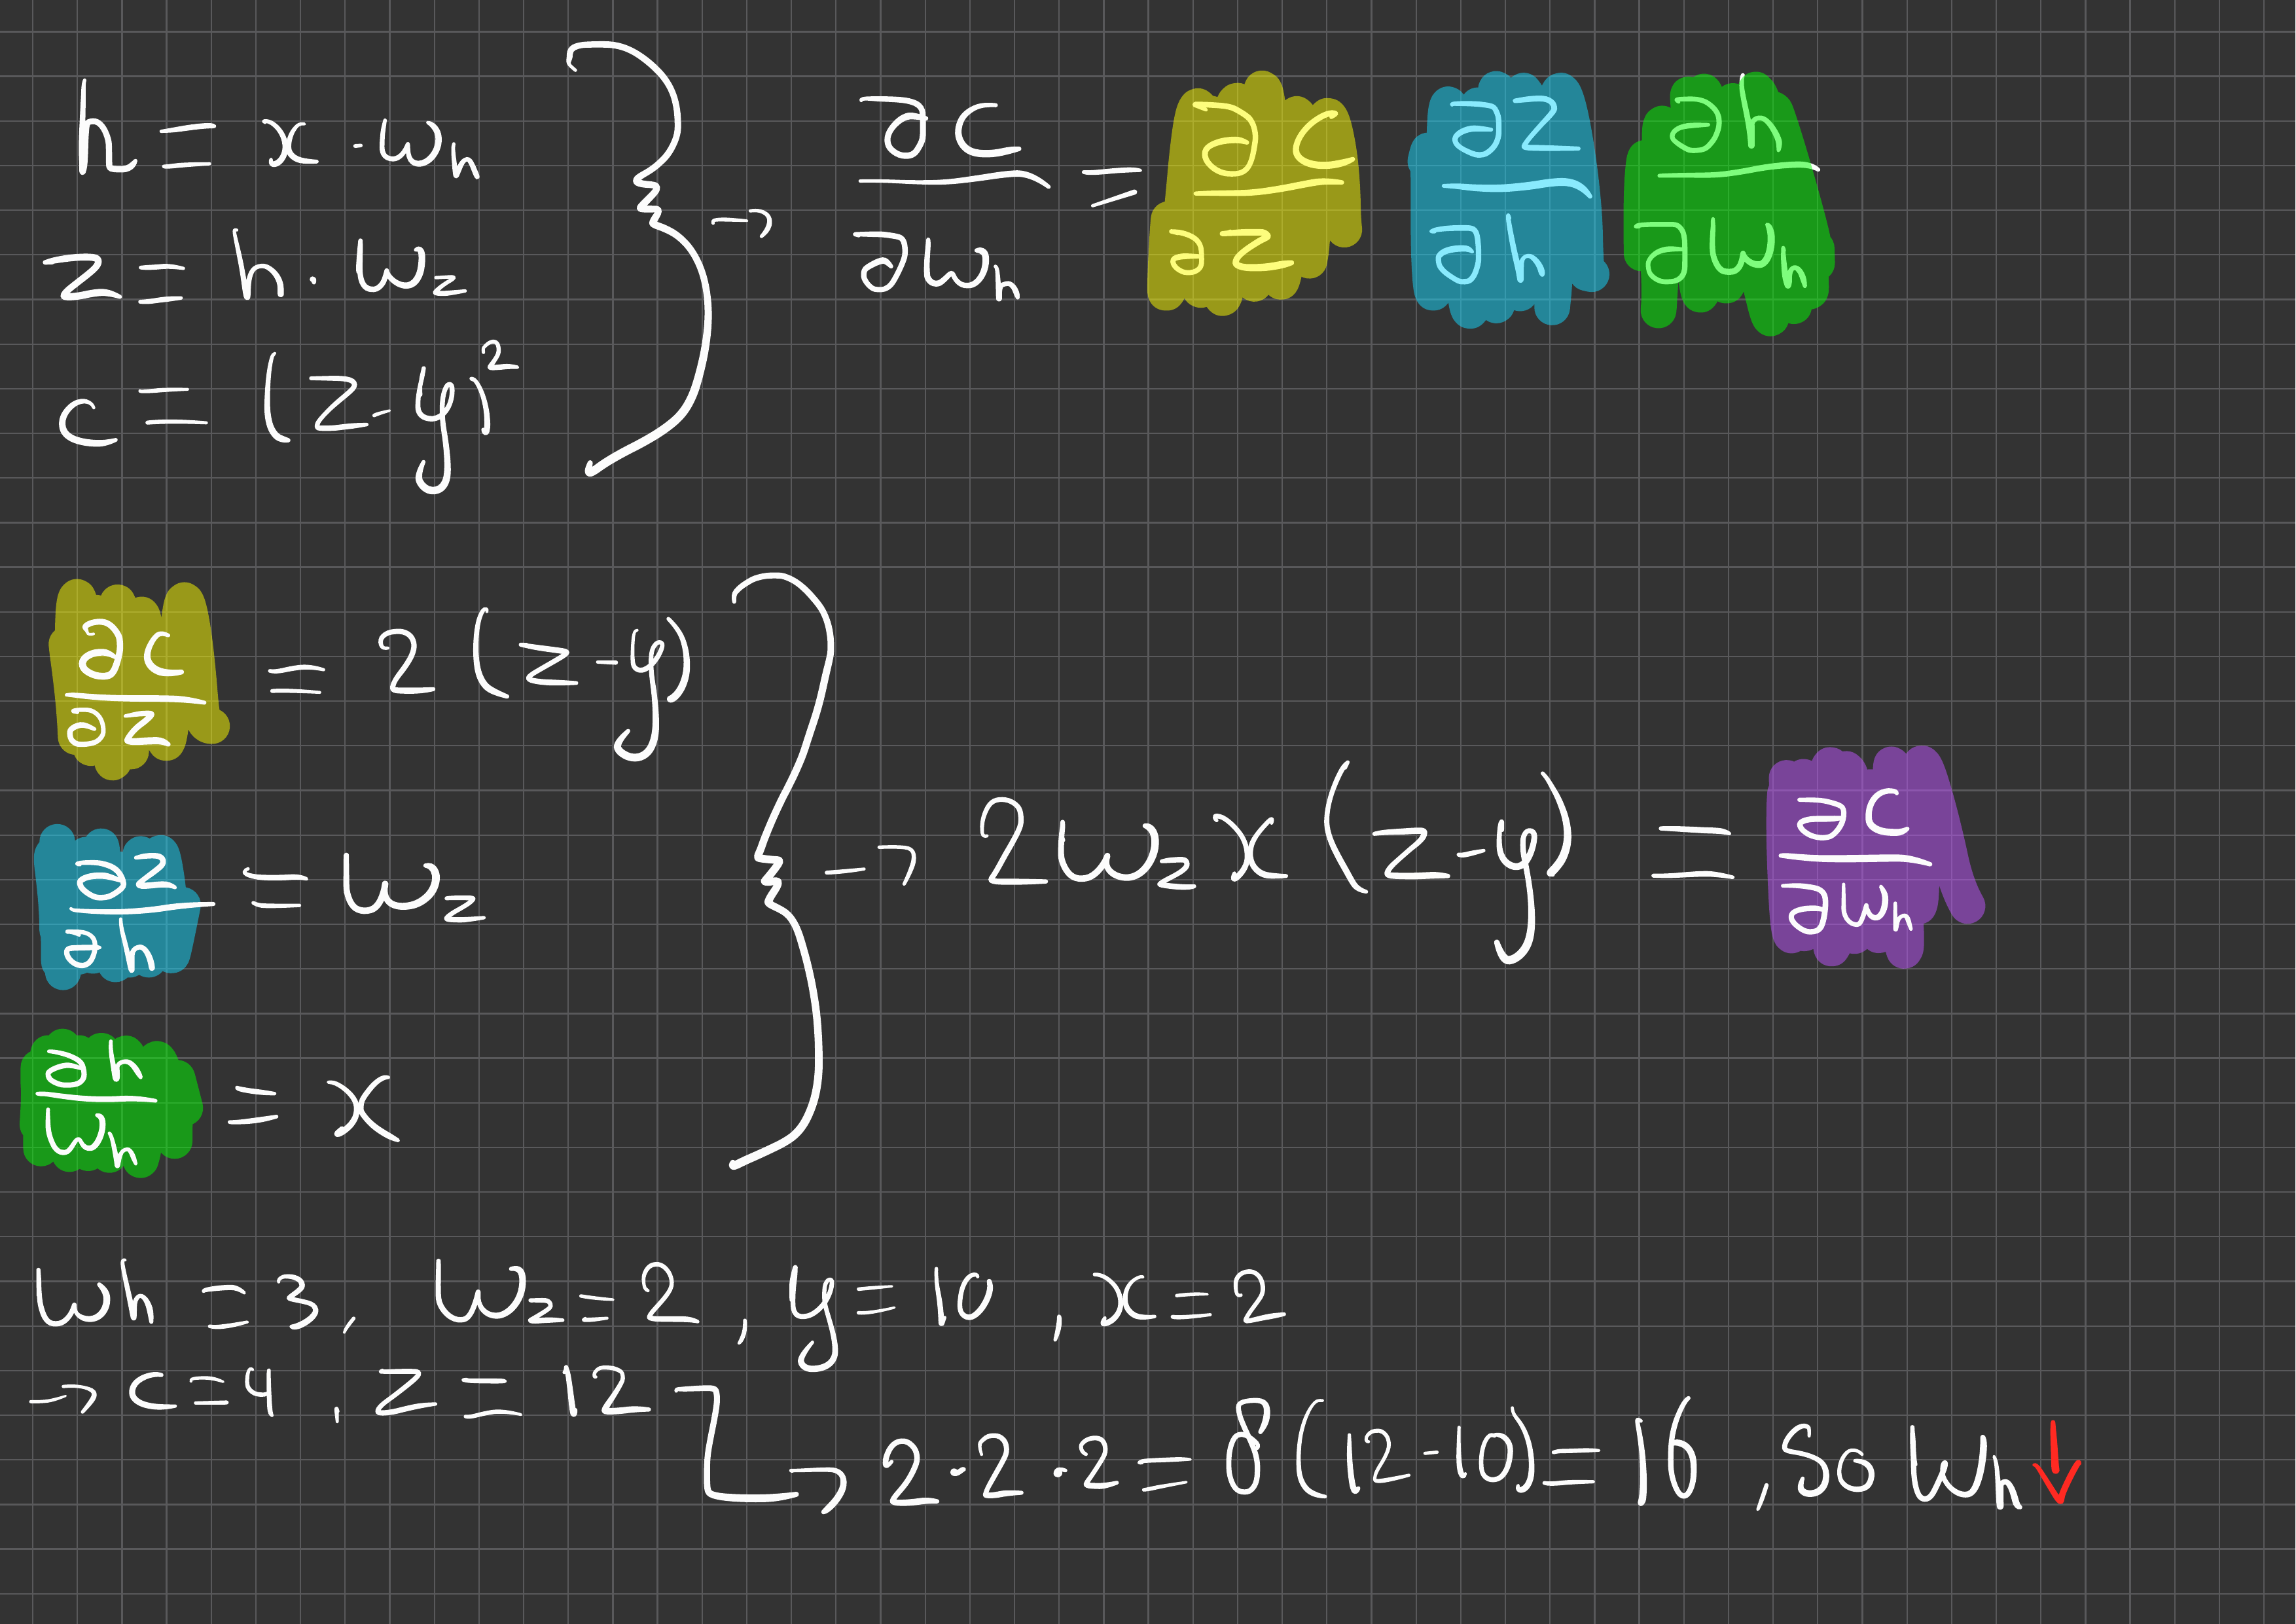 h = x · w_h
z = h · w_z
c = (z-y)²
→ ∂c/∂w_h = ∂c/∂z ∂z/∂h ∂h/∂w_h
∂c/∂z = 2(z-y)
∂z/∂h = w_z
∂h/w_h = x
→ 2w_z x(z-y) = ∂c/∂w_h
wh = 3, w_z = 2, y = 10, x = 2
→ c = 4, z = 12
→ 2·2·2 = 8(12-10) = 16, so w_h ↓